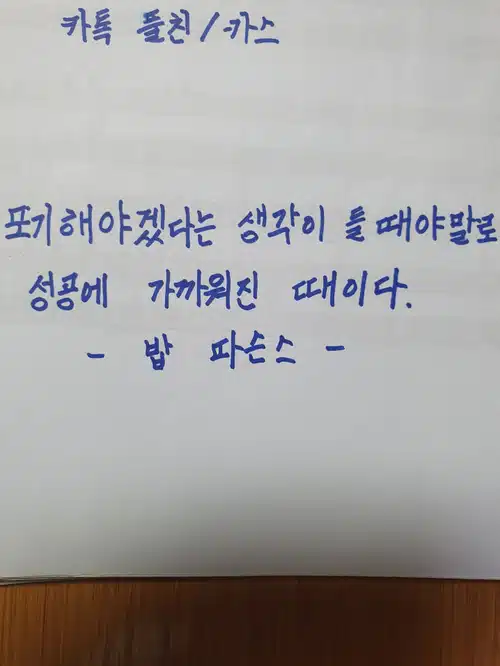 카톡 플친 / 카스
포기해야겠다는 생각이 들 때야말로
성공에 가까워진 때이다.
- 밥 파슨스 -